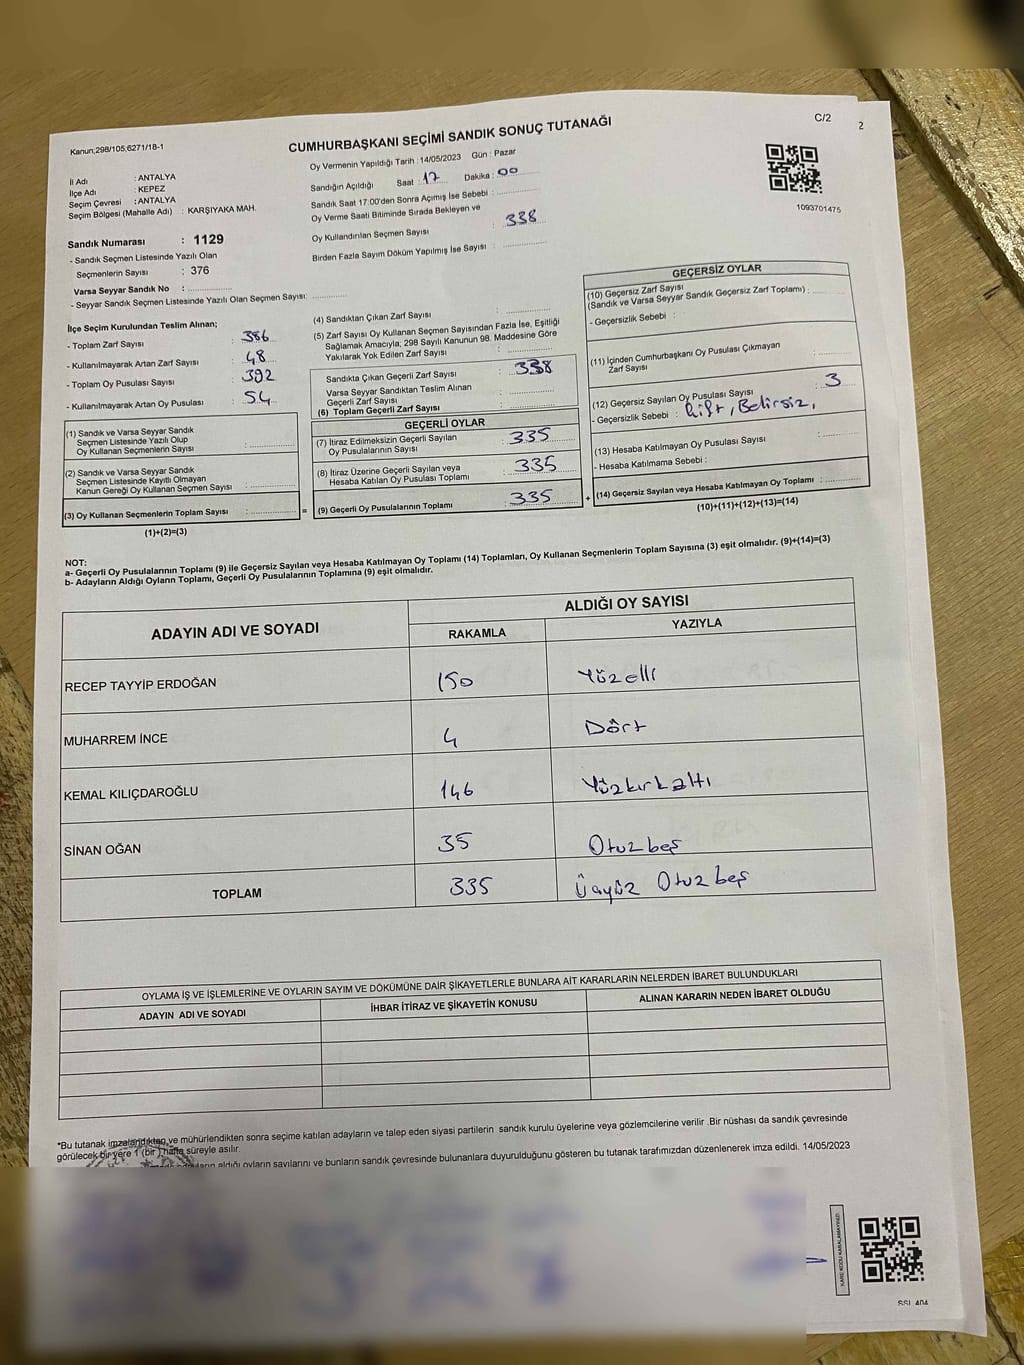 C/2
2
Kanun;298/105;6271/18-1
CUMHURBAŞKANI SEÇİMİ SANDIK SONUÇ TUTANAĞI
Oy Vermenin Yapıldığı Tarih : 14/05/2023 Gün : Pazar
İl Adı : ANTALYA
İlçe Adı : KEPEZ
Seçim Çevresi : ANTALYA
Seçim Bölgesi (Mahalle Adı) : KARŞIYAKA MAH.
Sandığın Açıldığı Saat : 17 Dakika : 00
Sandık Saat 17:00'den Sonra Açımış İse Sebebi :
Oy Verme Saati Bitiminde Sırada Bekleyen ve
Oy Kullandırılan Seçmen Sayısı : 338
Birden Fazla Sayım Döküm Yapılmış İse Sayısı :
1093701475
Sandık Numarası : 1129
- Sandık Seçmen Listesinde Yazılı Olan
Seçmenlerin Sayısı : 376
Varsa Seyyar Sandık No :
- Seyyar Sandık Seçmen Listesinde Yazılı Olan Seçmen Sayısı:
İlçe Seçim Kurulundan Teslim Alınan;
- Toplam Zarf Sayısı : 386
- Kullanılmayarak Artan Zarf Sayısı : 48
- Toplam Oy Pusulası Sayısı : 392
- Kullanılmayarak Artan Oy Pusulası : 54
(1) Sandık ve Varsa Seyyar Sandık
Seçmen Listesinde Yazılı Olup
Oy Kullanan Seçmenlerin Sayısı :
(2) Sandık ve Varsa Seyyar Sandık
Seçmen Listesinde Kayıtlı Olmayan
Kanun Gereği Oy Kullanan Seçmen Sayısı :
(3) Oy Kullanan Seçmenlerin Toplam Sayısı : =
(1)+(2)=(3)
(4) Sandıktan Çıkan Zarf Sayısı :
(5) Zarf Sayısı Oy Kullanan Seçmen Sayısından Fazla İse, Eşitliği
Sağlamak Amacıyla; 298 Sayılı Kanunun 98. Maddesine Göre
Yakılarak Yok Edilen Zarf Sayısı :
Sandıkta Çıkan Geçerli Zarf Sayısı : 338
Varsa Seyyar Sandıktan Teslim Alınan
Geçerli Zarf Sayısı :
(6) Toplam Geçerli Zarf Sayısı :
GEÇERLİ OYLAR
(7) İtiraz Edilmeksizin Geçerli Sayılan
Oy Pusulalarının Sayısı : 335
(8) İtiraz Üzerine Geçerli Sayılan veya
Hesaba Katılan Oy Pusulası Toplamı : 335
(9) Geçerli Oy Pusulalarının Toplamı : 335 +
GEÇERSİZ OYLAR
(10) Geçersiz Zarf Sayısı
(Sandık ve Varsa Seyyar Sandık Geçersiz Zarf Toplamı) :
- Geçersizlik Sebebi :
(11) İçinden Cumhurbaşkanı Oy Pusulası Çıkmayan
Zarf Sayısı :
(12) Geçersiz Sayılan Oy Pusulası Sayısı : 3
- Geçersizlik Sebebi : Çift, Belirsiz,
(13) Hesaba Katılmayan Oy Pusulası Sayısı :
- Hesaba Katılmama Sebebi :
(14) Geçersiz Sayılan veya Hesaba Katılmayan Oy Toplamı :
(10)+(11)+(12)+(13)=(14)
NOT:
a- Geçerli Oy Pusulalarının Toplamı (9) ile Geçersiz Sayılan veya Hesaba Katılmayan Oy Toplamı (14) Toplamları, Oy Kullanan Seçmenlerin Toplam Sayısına (3) eşit olmalıdır. (9)+(14)=(3)
b- Adayların Aldığı Oyların Toplamı, Geçerli Oy Pusulalarının Toplamına (9) eşit olmalıdır.
ADAYIN ADI VE SOYADI
ALDIĞI OY SAYISI
RAKAMLA YAZIYLA
RECEP TAYYİP ERDOĞAN 150 Yüzelli
MUHARREM İNCE 4 Dört
KEMAL KILIÇDAROĞLU 146 Yüzkırkaltı
SİNAN OĞAN 35 Otuzbeş
TOPLAM 335 Üçyüz Otuzbeş
OYLAMA İŞ VE İŞLEMLERİNE VE OYLARIN SAYIM VE DÖKÜMÜNE DAİR ŞİKAYETLERLE BUNLARA AİT KARARLARIN NELERDEN İBARET BULUNDUKLARI
ADAYIN ADI VE SOYADI İHBAR İTİRAZ VE ŞİKAYETİN KONUSU ALINAN KARARIN NEDEN İBARET OLDUĞU
*Bu tutanak imzalandıktan ve mühürlendikten sonra seçime katılan adayların ve talep eden siyasi partilerin sandık kurulu üyelerine veya gözlemcilerine verilir .Bir nüshası da sandık çevresinde
görülecek bir yere 1 (bir ) hafta süreyle asılır.
aldığı oyların sayılarını ve bunların sandık çevresinde bulunanlara duyurulduğunu gösteren bu tutanak tarafımızdan düzenlenerek imza edildi. 14/05/2023
KARE KODU KARALAMAYINIZ!